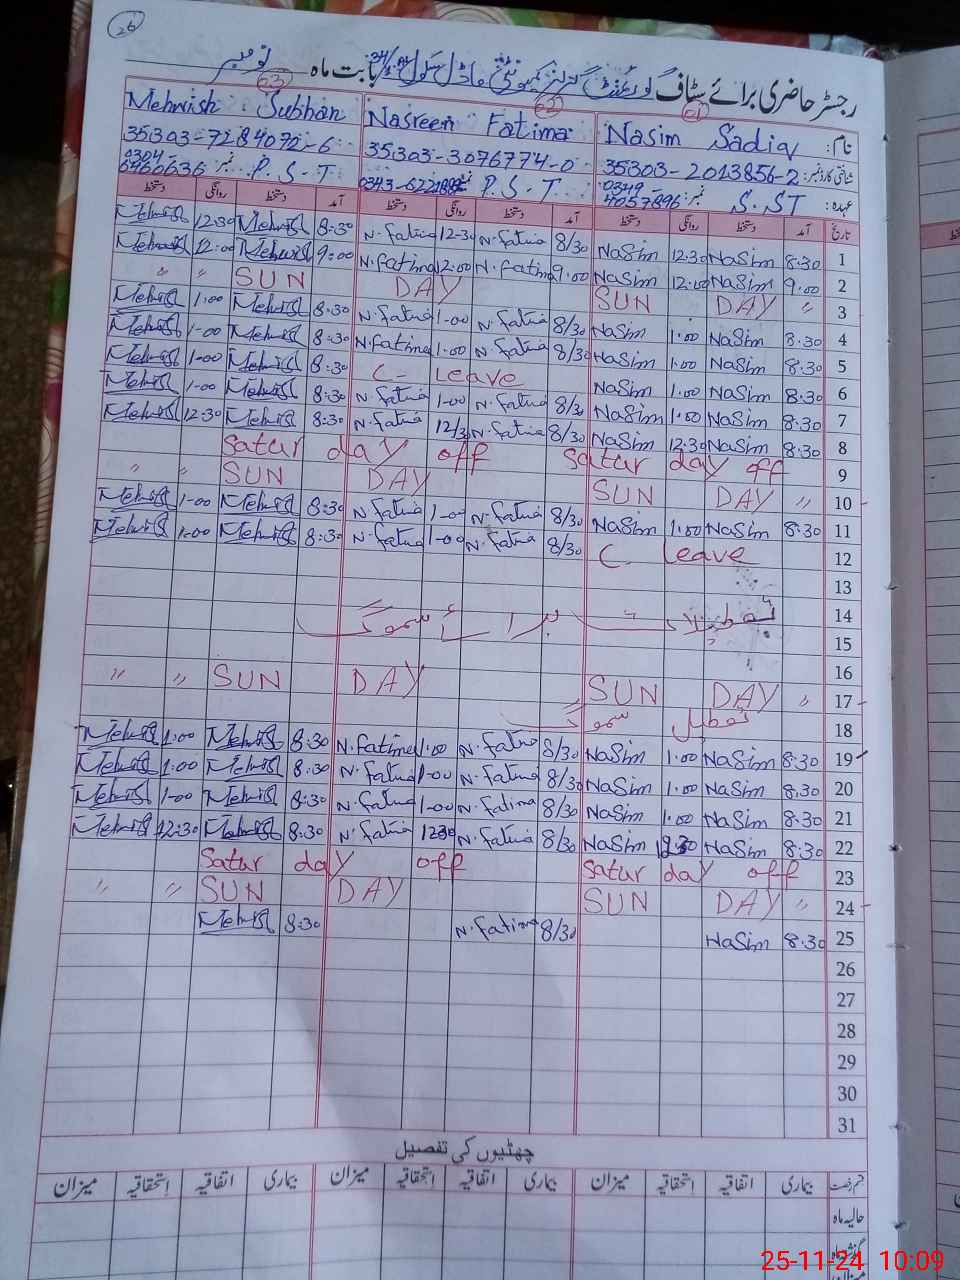 26
رجسٹر حاضری برائے سٹاف گورنمنٹ گرلز کمیونٹی ماڈل سکول بابت ماہ نومبر
نام: Nasim Sadiq 01 Nasreen Fatima 02 Mehwish Subhan 03
شناختی کارڈ نمبر: 35303-2013856-2 35303-3076774-0 35303-7284072-6
عہدہ: S.ST نمبر: 0349 4057896 P.S.T P.S.T نمبر: 0304 6760636
تاریخ آمد دستخط روانگی دستخط آمد دستخط روانگی دستخط آمد دستخط روانگی دستخط
1 8:30 NaSim 12:30 NaSim 8/30 N.fatima 12-30 N.fatima 8:30 Mehwish 12:30 Mehwish
2 9:00 NaSim 12:00 NaSim 9:00 N.fatima 12:00 N.fatima 9:00 Mehwish 12:00 Mehwish
3 SUN DAY " SUN DAY " "
4 8:30 NaSim 1:00 NaSim 8/30 N.fatima 1-00 N.fatima 8:30 Mehwish 1:00 Mehwish
5 8:30 NaSim 1:00 NaSim 8/30 N.fatima 1:00 N.fatima 8:30 Mehwish 1-00 Mehwish
6 8:30 NaSim 1:00 NaSim C- leave 8:30 Mehwish 1-00 Mehwish
7 8:30 NaSim 1:00 NaSim 8/30 N.fatima 1-00 N.fatima 8:30 Mehwish 1-00 Mehwish
8 8:30 NaSim 12:30 NaSim 8/30 N.fatima 12/30 N.fatima 8:30 Mehwish 12:30 Mehwish
9 Satur day off Satur day off
10 SUN DAY " SUN DAY " "
11 8:30 NaSim 1:00 NaSim 8/30 N.fatima 1-00 N.fatima 8:30 Mehwish 1-00 Mehwish
12 C- leave 8/30 N.fatima 1-00 N.fatima 8:30 Mehwish 1:00 Mehwish
13
14 تعطیلات برائے سموگ
15
16
17 SUN DAY " SUN DAY " "
18 تعطیل سموگ
19 8:30 NaSim 1:00 NaSim 8/30 N.fatima 1:00 N.fatima 8:30 Mehwish 1:00 Mehwish
20 8:30 NaSim 1:00 NaSim 8/30 N.fatima 1-00 N.fatima 8:30 Mehwish 1:00 Mehwish
21 8:30 NaSim 1:00 NaSim 8/30 N.fatima 1-00 N.fatima 8:30 Mehwish 1-00 Mehwish
22 8:30 NaSim 12:30 NaSim 8/30 N.fatima 1230 N.fatima 8:30 Mehwish 12:30 Mehwish
23 Satur day off Satur day off
24 SUN DAY " SUN DAY " "
25 8:30 NaSim 8/30 N.fatima 8:30 Mehwish
26
27
28
29
30
31
چھٹیوں کی تفصیل
قسم رخصت بیماری اتفاقیہ استحقاقیہ میزان بیماری اتفاقیہ استحقاقیہ میزان بیماری اتفاقیہ استحقاقیہ میزان
حالیہ ماہ
گزشتہ ماہ
25-11-24 10:09